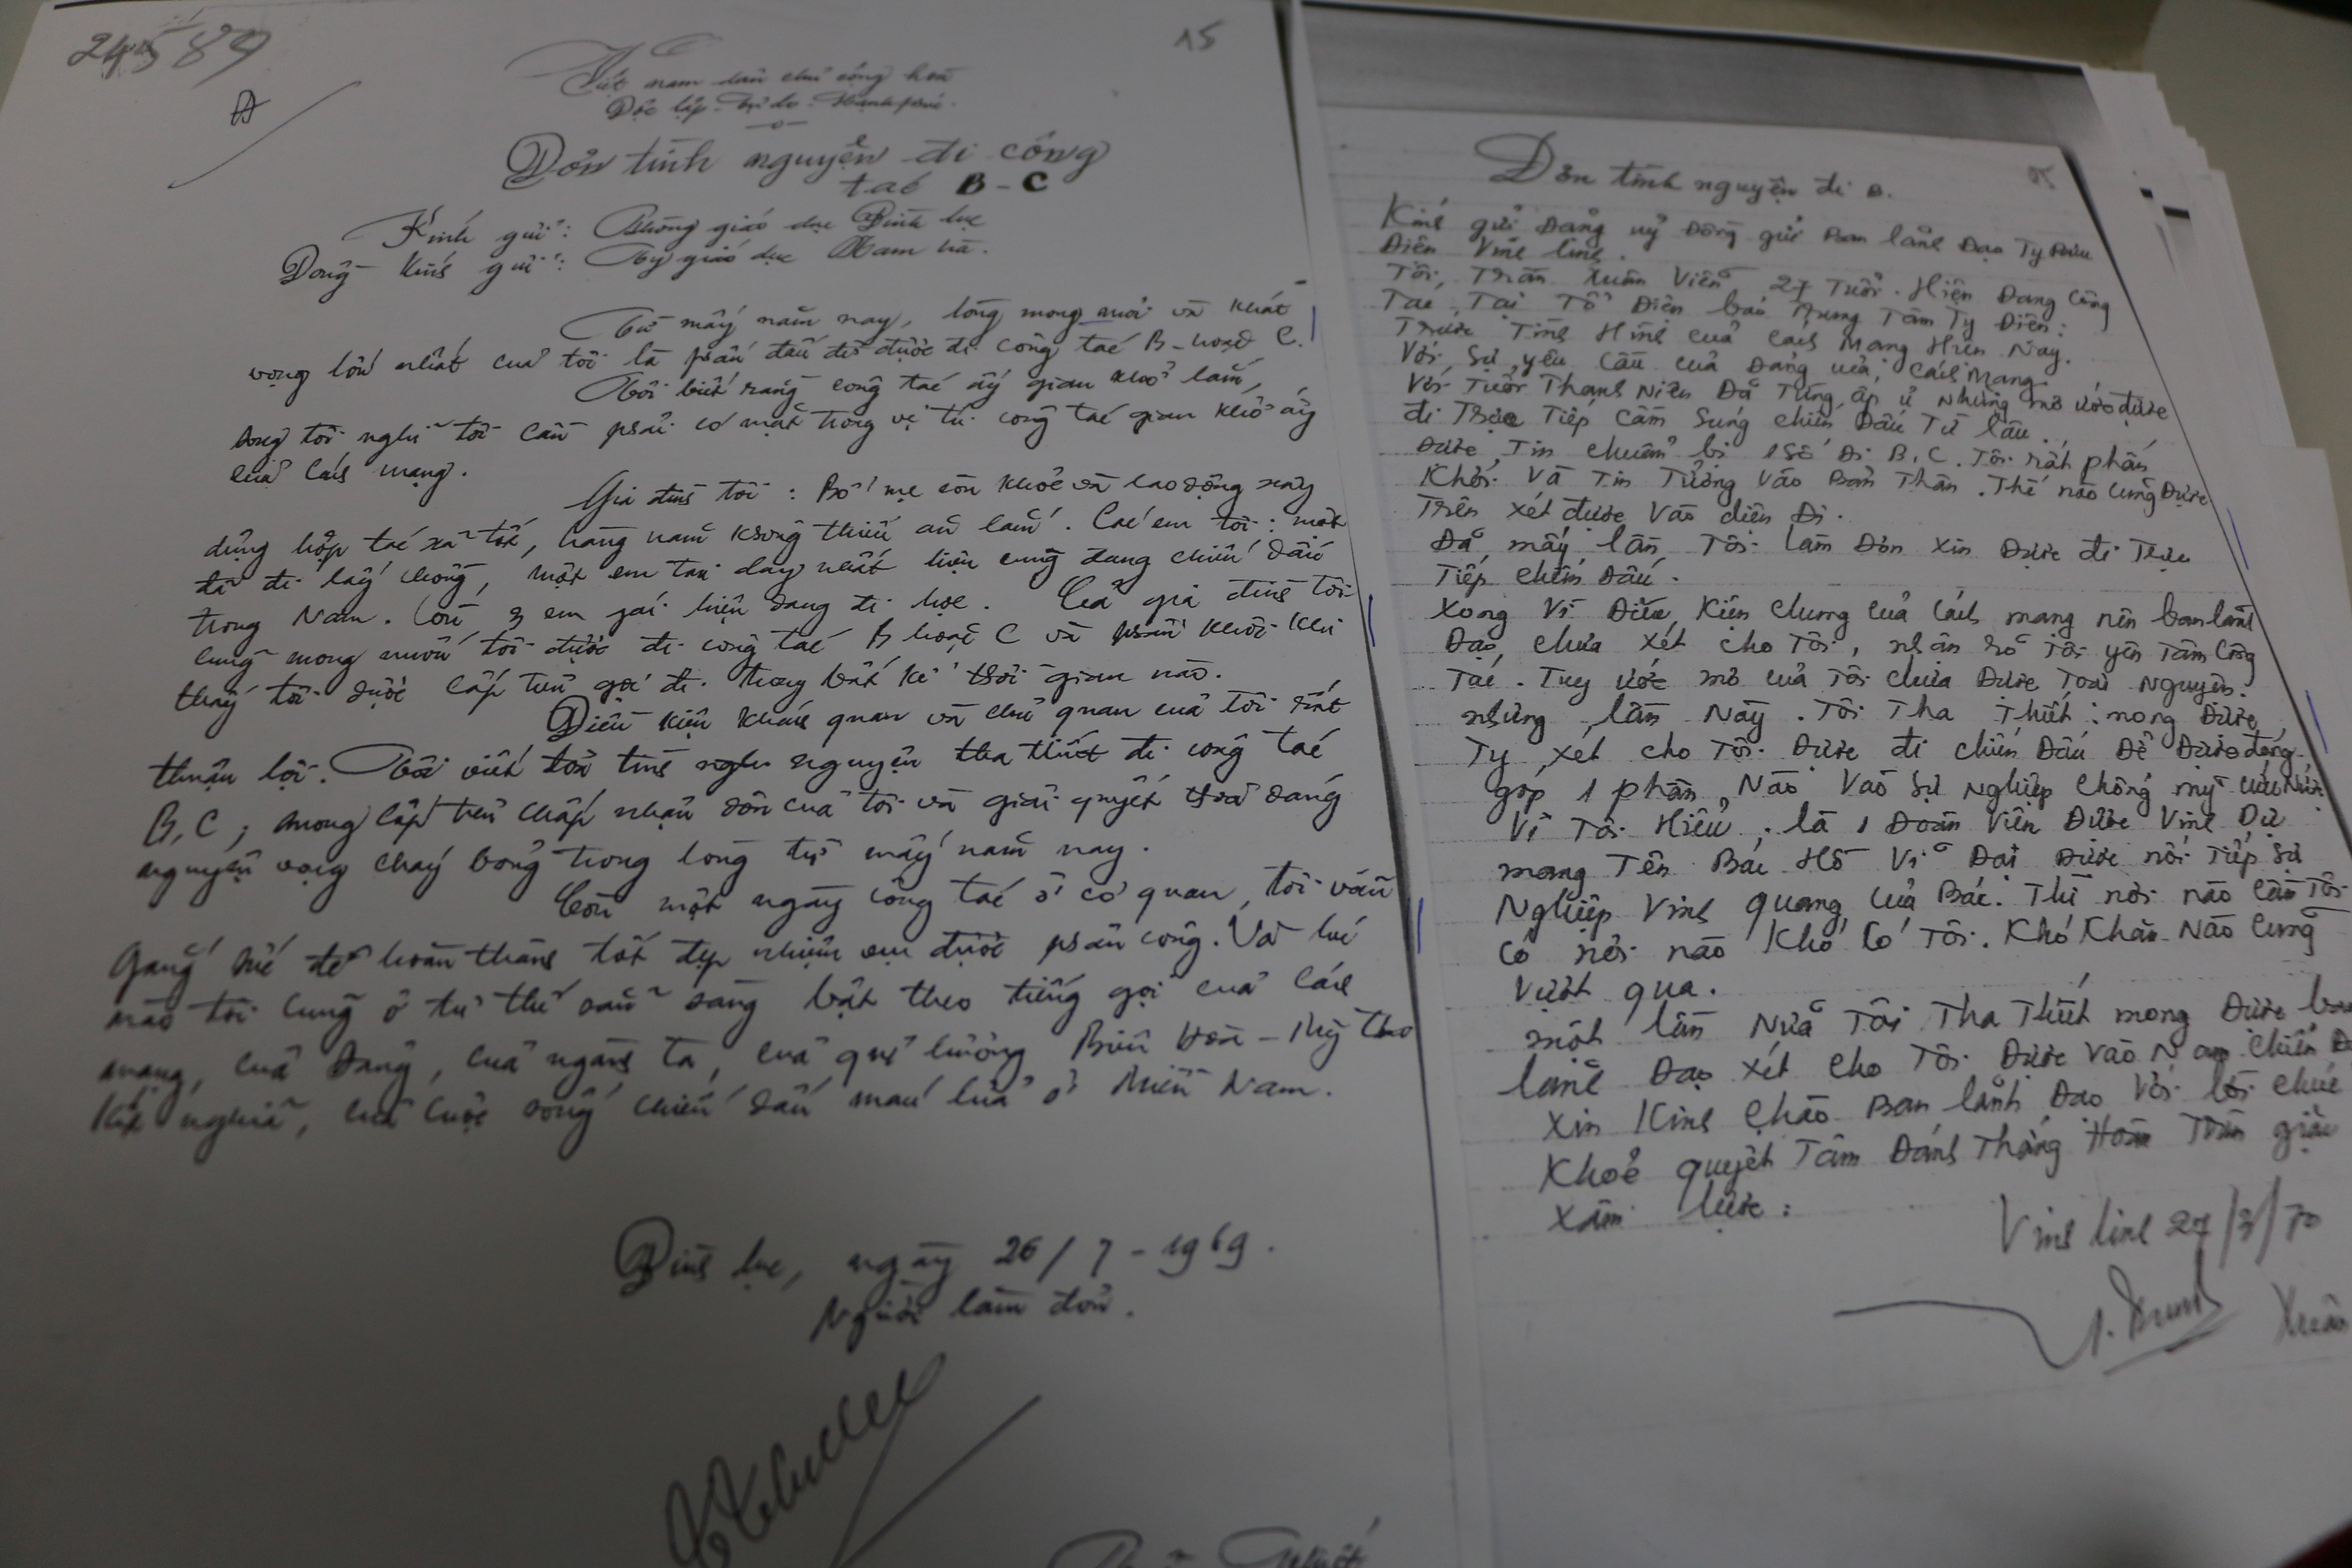 24589
15
Việt nam dân chủ cộng hoà
Độc lập - Tự do - Hạnh phúc
Đơn tình nguyện đi công
tác B-C
Kính gửi: Phòng giáo dục Bình lục
Đồng Kính gửi: Ty giáo dục Nam hà.
Từ mấy năm nay, lòng mong mỏi và khát
vọng lớn nhất của tôi là phấn đấu để được đi công tác B hoặc C.
Tôi biết rằng công tác ấy gian khổ lắm,
song tôi nghĩ tôi cần phải có mặt trong vị trí công tác gian khổ ấy
của Cách mạng.
Gia đình tôi: Bố mẹ còn khoẻ và lao động xây
dựng hợp tác xã tốt, hàng năm không thiếu ăn lắm. Các em tôi: một
đã đi lấy chồng, một em trai hiện cũng đang chiến đấu
trong Nam. Còn 3 em gái hiện đang đi học. Cả gia đình tôi
cũng mong muốn tôi được đi công tác B hoặc C và phấn khởi khi
thấy tôi được cấp trên gọi đi trong bất kì thời gian nào.
Điều kiện khách quan và chủ quan của tôi rất
thuận lợi. Tôi viết đơn tình nguyện tha thiết đi công tác
B, C; mong cấp trên chấp nhận đơn của tôi và giải quyết thoả đáng
nguyện vọng cháy bỏng trong lòng từ mấy năm nay.
Còn một ngày công tác ở cơ quan, tôi vẫn
gắng sức để hoàn thành tốt đẹp nhiệm vụ được phân công. Và lúc
nào tôi cũng ở tư thế sẵn sàng bật theo tiếng gọi của Cách
mạng, của Đảng, của ngành ta, của quê hương Biên Hoà - Mỹ Tho
kết nghĩa, của cuộc sống chiến đấu máu lửa ở Miền Nam.
Bình lục, ngày 26/7-1969.
Người làm đơn.
Đơn tình nguyện đi B.
Kính gửi Đảng uỷ Đồng gửi Ban lãnh Đạo Ty Bưu
Điện Vĩnh linh.
Tôi, Trần Xuân Viễn 27 Tuổi. Hiện Đang Công
Tác Tại Tổ Điện báo Trung Tâm Ty Điện:
Trước Tình Hình của Cách Mạng Hiện Nay.
Với Sự yêu Cầu của Đảng của Cách Mạng
Với Tuổi Thanh Niên Đã Từng ấp ủ Những mơ ước được
đi Trực Tiếp Cầm Súng Chiến Đấu Từ lâu.
Được Tin chuẩn bị 1 Số Đi B, C. Tôi rất phấn
Khởi Và Tin Tưởng Vào Bản Thân. Thế nào cũng Được
Trên xét được Vào diện Đi.
Đã mấy lần Tôi làm Đơn Xin Được đi Trực
Tiếp Chiến Đấu.
Xong Vì Điều Kiện Chung của Cách mạng nên ban lãnh
Đạo chưa Xét Cho Tôi, nhận rõ Tôi yên Tâm Công
Tác. Tuy ước mơ của Tôi chưa Được Toại Nguyện.
nhưng lần Này. Tôi Tha Thiết mong Được
Ty xét cho Tôi Được đi Chiến Đấu Để Được đóng
góp 1 phần Nào Vào Sự Nghiệp Chống mỹ cứu Nước
Vì Tôi Hiểu. là 1 Đoàn Viên Được Vinh Dự
mang Tên Bác Hồ Vĩ Đại Được nối Tiếp Sự
Nghiệp Vinh quang của Bác. Thì nơi nào Cần Tôi
Có nơi nào Khó Có Tôi. Khó Khăn Nào Cũng
Vượt qua.
một lần Nữa Tôi Tha Thiết mong Được ban
lãnh Đạo xét cho Tôi Được Vào Nam Chiến
Xin Kính Chào Ban lãnh Đạo Với lời chúc
Khoẻ quyết Tâm Đánh Thắng Hoàn Toàn giặc
Xâm lược:
Vĩnh linh 27/3/70
Xuân